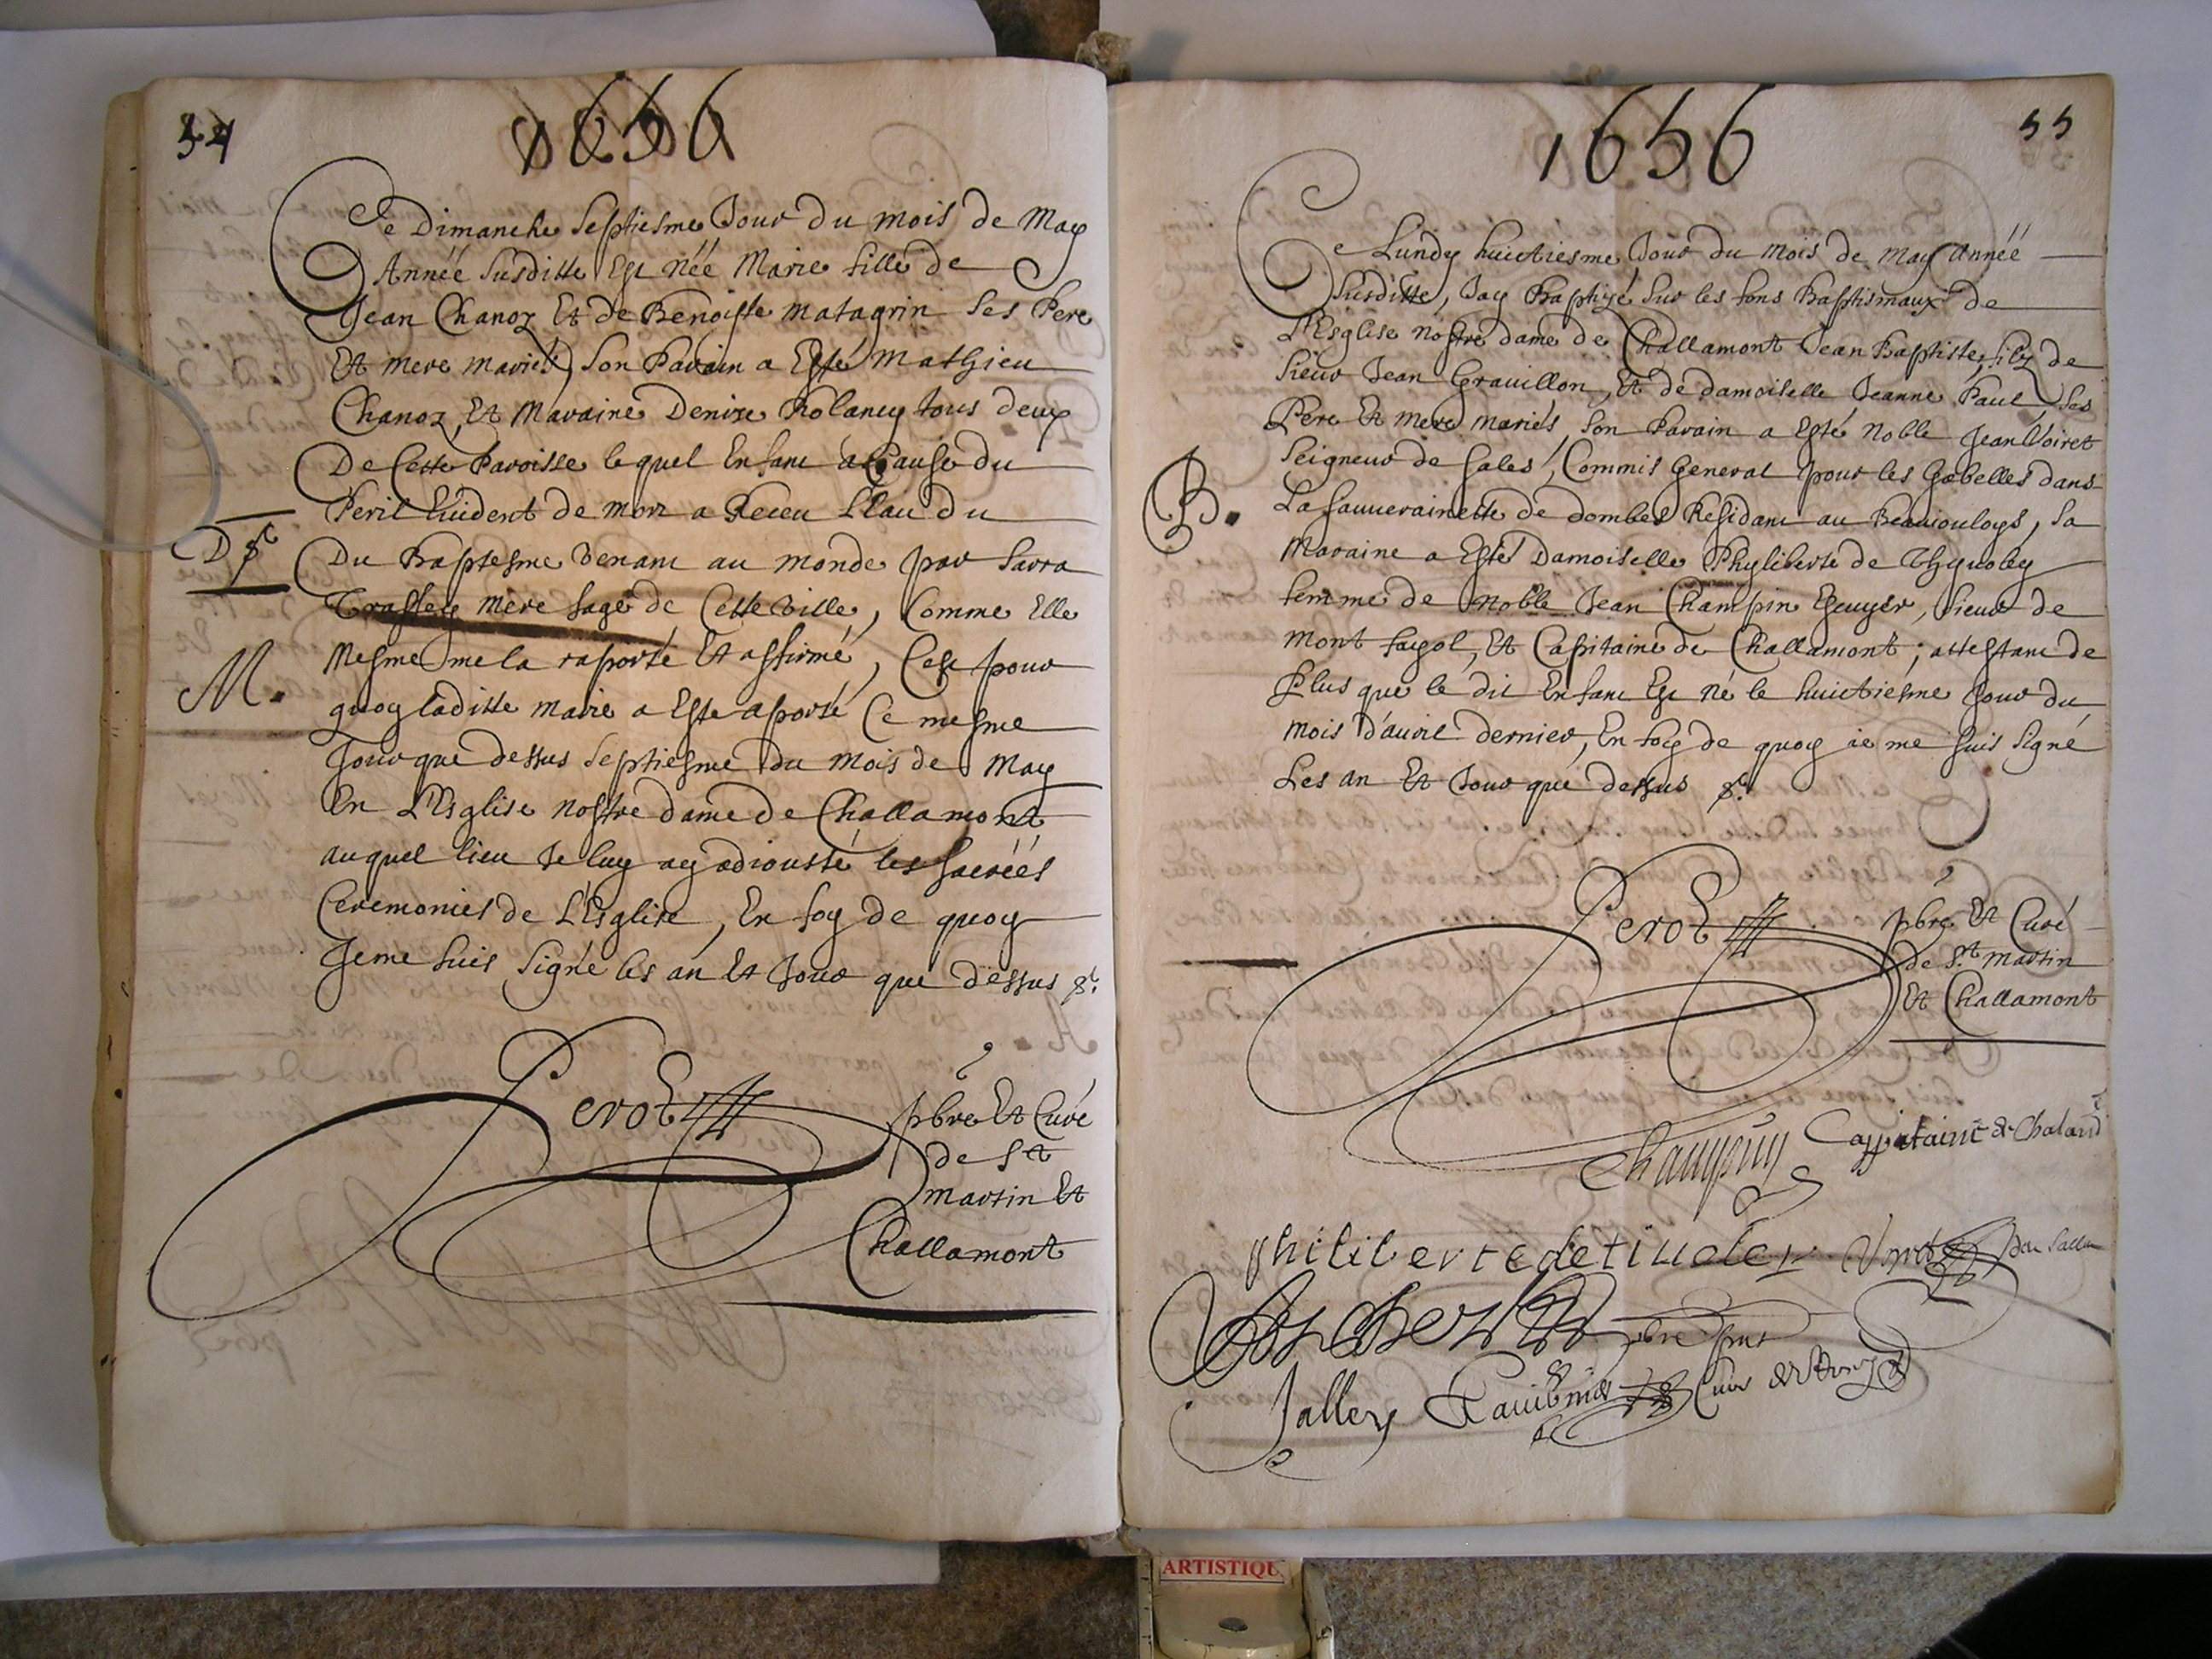 54
1656
Ce Dimanche Septiesme Jour du mois de May
Année Susditte Est Née Marie fille de
Jean Chanoz Et de Benoiste matagrin ses Pere
Et mere mariés, Son Parain a Esté Mathieu
Chanoz, Et Maraine Denize Rolancy tous deux
De Cette Paroisse lequel Enfant à Cause du
Peril Euident de mort a Receu L'eau du
Du Baptesme Venant au monde par Sarra
mere sage de Cette Ville, Comme Elle
Mesme me la raporté Et affirmé, C'est pour
quoy laditte marie a Esté aporté Ce mesme
Jour que dessus Septiesme du Mois de May
En L'Esglise nostre dame de Challamont
auquel lieu Je luy ay adiousté les sacréés
Ceremonies de L'Esglise, En foy de quoy
Je me suis Signé les an Et Jour que dessus
M.
Perot
pbre Et Curé
de St
martin Et
Challamont
55
1656
Ce Lundy huictiesme Jour du Mois de May Année
Susditte, Jay Baptizé Sur les fons Baptismaux de
L'Esglise Nostre dame de Challamont Jean Baptiste, filz de
Sieur Jean Grauillon, Et de damoiselle Jeanne Paul ses
Pere Et Mere Mariés, Son Parain a Esté Noble Jean Voiret
Seigneur de Sales, Commis General pour les Gabelles dans
La Sauuerainette de dombes Residant au Beaujouloys, Sa
B.
Maraine a Esté Damoiselle Phyliberte de
femme de Noble Jean Champin Escuyer, Sieur de
Mont fayol, Et Capitaine de Challamont; attestant de
Plus que le dit Enfant Est Né le huictiesme Jour du
Mois d'auril dernier, En foy de quoy ie me suis Signé
Les an Et Jour que dessus
Perot
pbre Et Curé
de St. martin
Et Challamont
Champin Cappitaine de
philiberte de
pbre
Jalley
Curé de
ARTISTIQU